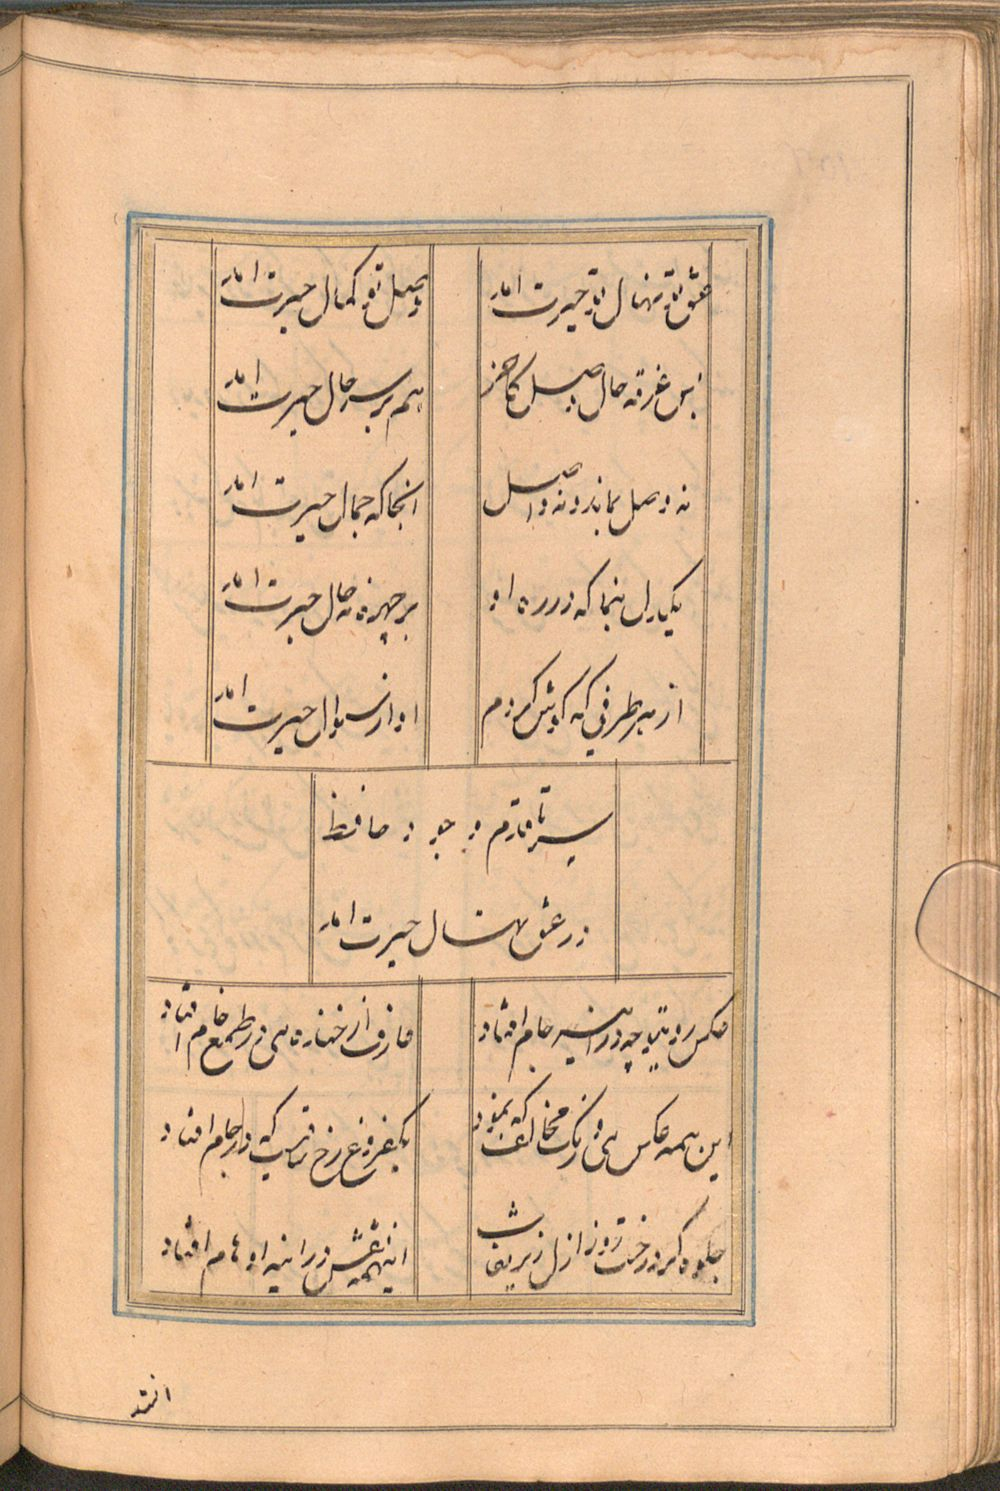 عشق تو نهال حیرت آمد
وصل تو کمال حیرت آمد
بس غرقه حال وصل کاخر
هم بر سر حال حیرت آمد
نه وصل بماند و نه واصل
آنجا که جمال حیرت آمد
یکدل بنما که در ره او
بر چهره نه خال حیرت آمد
از هر طرفی که گوش کردم
آواز سوال حیرت آمد
سر تا قدم وجود حافظ
در عشق نهال حیرت آمد
عکس روی تو چو در آینه جام افتاد
عارف از خنده می در طمع خام افتاد
این همه عکس می و رنگ مخالف که نمود
یک فروغ رخ ساقیست که در جام افتاد
جلوه کرد رخت روز ازل زیر نقاب
اینهمه نقش در آینه اوهام افتاد